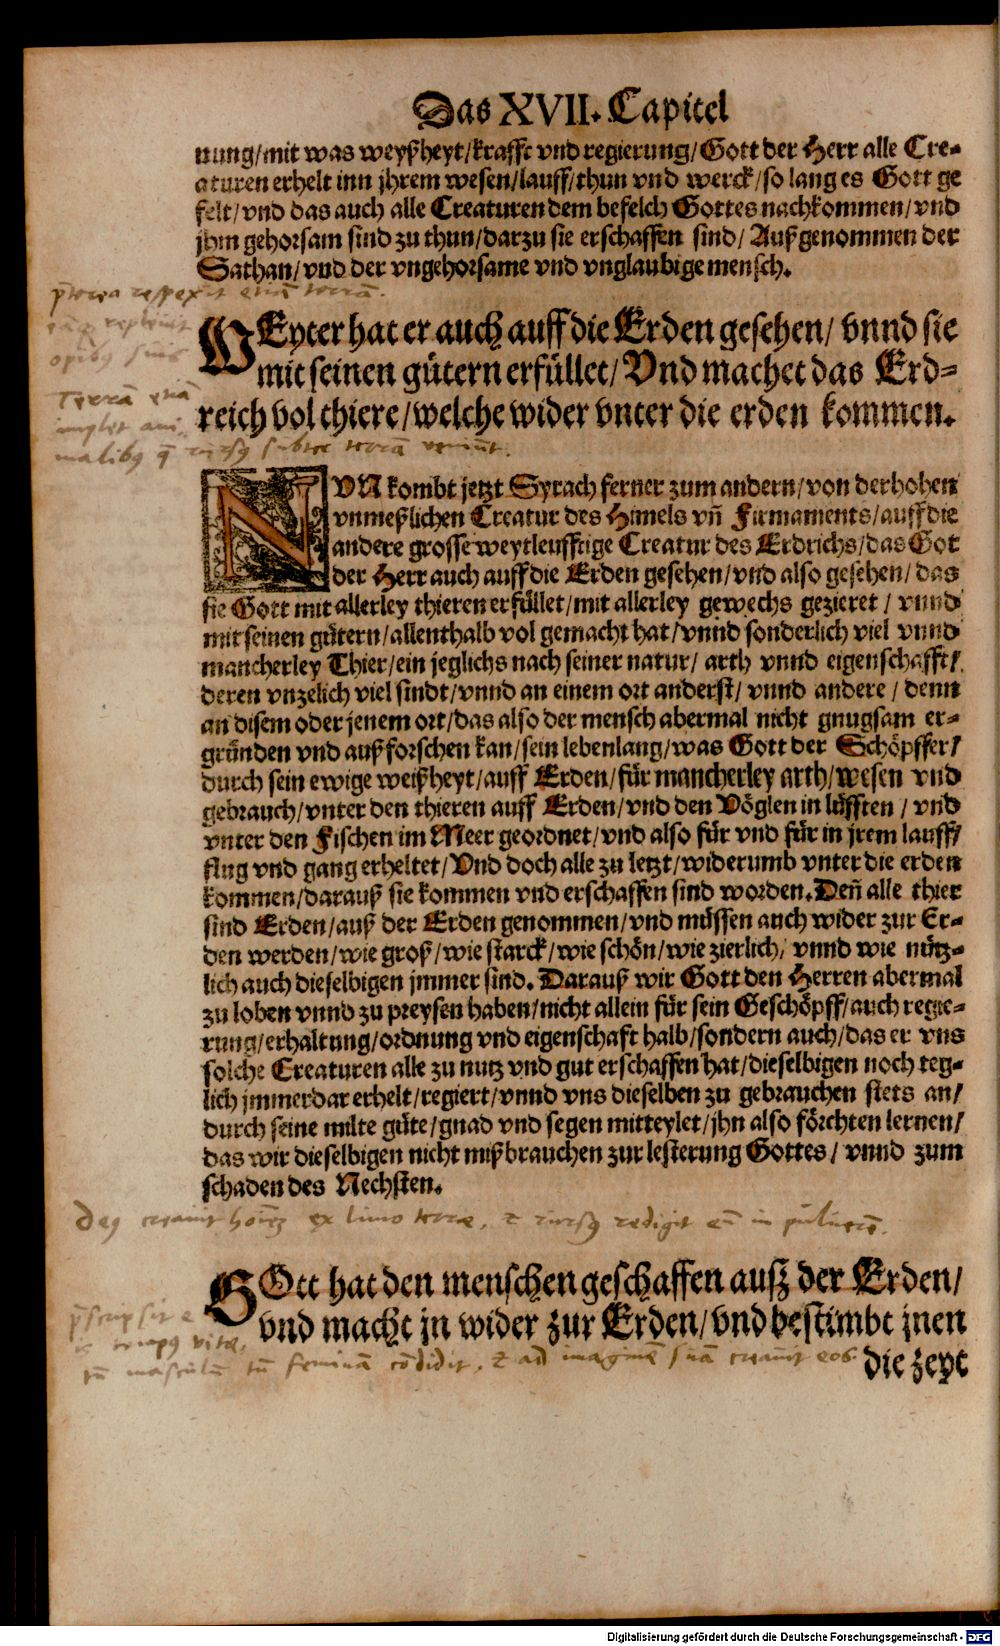 Das XVII. Capitel
nung/mit was weyßheyt/krafft vnd regierung/Gott der Herr alle Cre-
aturen erhelt inn jhrem wesen/lauff/thun vnd werck/so lang es Gott ge
felt/vnd das auch alle Creaturen dem befelch Gottes nachkommen/vnd
jhm gehorsam sind zu thun/darzu sie erschaffen sind/Außgenommen der
Sathan/vnd der vngehorsame vnd vnglaubige mensch.
p̄terea respexit etiā terrā.
WEyter hat er auch auff die Erden gesehen/vnnd sie
mit seinen gütern erfüllet/Vnd machet das Erd-
reich vol thiere/welche wider vnter die erden kommen.
replevit
opibus suis
Terrā etiā
implet ani
malibus q̄ rursus subter terrā veniūt.
NVN kombt jetzt Syrach ferner zum andern/von der hohen
vnmeßlichen Creatur des Himels vn̄ Firmaments/auff die
andere grosse weytleufftige Creatur des Erdrichs/das Got
der Herr auch auff die Erden gesehen/vnd also gesehen/das
sie Gott mit allerley thieren erfüllet/mit allerley gewechs gezieret/vnnd
mit seinen gütern/allenthalb vol gemacht hat/vnnd sonderlich viel vnnd
mancherley Thier/ein jeglichs nach seiner natur/arth vnnd eigenschafft/
deren vnzelich viel sindt/vnnd an einem ort anderst/vnnd andere/denn
an disem oder jenem ort/das also der mensch abermal nicht gnugsam er-
gründen vnd außforschen kan/sein lebenlang/was Gott der Schöpffer/
durch sein ewige weißheyt/auff Erden/für mancherley arth/wesen vnd
gebrauch/vnter den thieren auff Erden/vnd den Vöglen in lüfften/vnd
vnter den Fischen im Meer geordnet/vnd also für vnd für in jrem lauff/
flug vnd gang erheltet/Vnd doch alle zu letzt/widerumb vnter die erden
kommen/darauß sie kommen vnd erschaffen sind worden. Deñ alle thier
sind Erden/auß der Erden genommen/vnd müssen auch wider zur Er-
den werden/wie groß/wie starck/wie schön/wie zierlich/vnnd wie nütz-
lich auch dieselbigen jmmer sind. Darauß wir Gott den Herren abermal
zu loben vnnd zu preysen haben/nicht allein für sein Geschöpff/auch regie-
rung/erhaltung/ordnung vnd eigenschaft halb/sondern auch/das er vns
solche Creaturen alle zu nutz vnd gut erschaffen hat/dieselbigen noch teg-
lich jmmerdar erhelt/regiert/vnnd vns dieselben zu gebrauchen stets an/
durch seine milte güte/gnad vnd segen mitteylet/jhn also förchten lernen/
das wir dieselbigen nicht mißbrauchen zur lesterung Gottes/vnnd zum
schaden des Nechsten.
Deus creavit hoīem ex limo terrae, & rursus redigit eū in pulverē.
GOtt hat den menschen geschaffen ausz der Erden/
vnd macht jn wider zur Erden/vnd bestimbt jnen
die zeyt
p̄scripsit e
is tempus vitae,
tū masculū tū feminā cōdidit, & ad imaginē suā creavit eos.
Digitalisierung gefördert durch die Deutsche Forschungsgemeinschaft - DFG